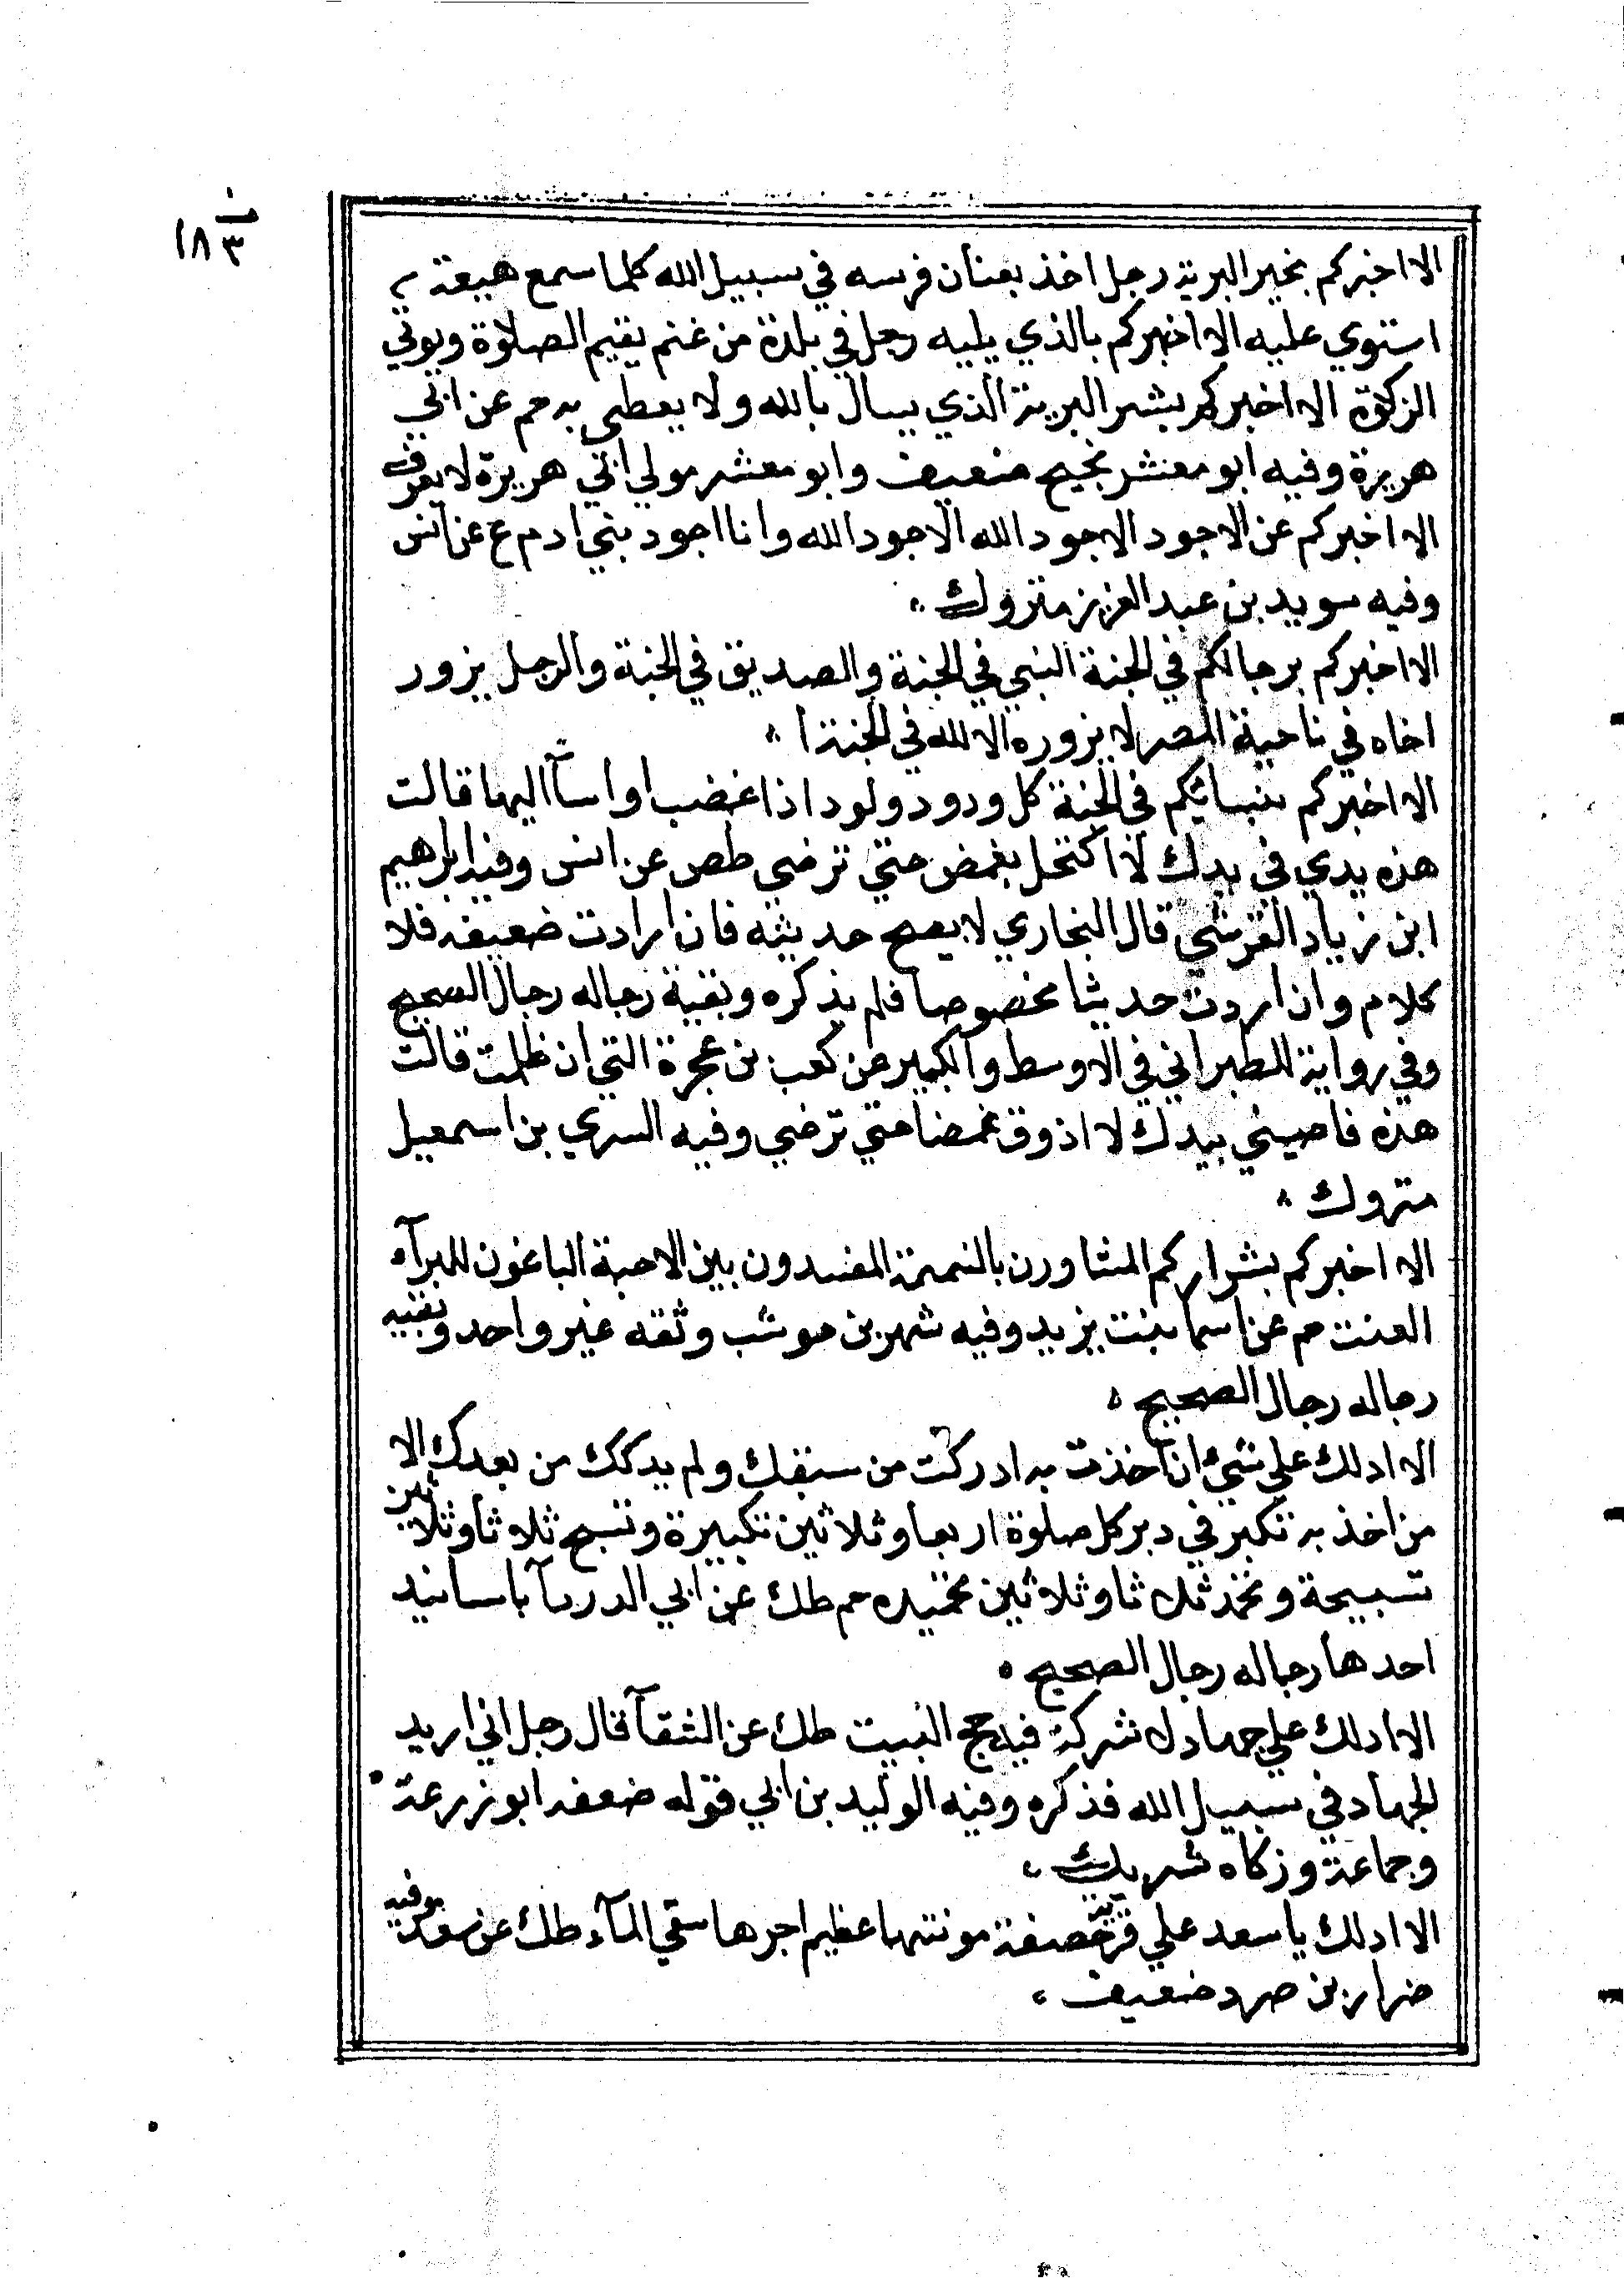 ١٨٣
الا اخبركم بخير البرية رجل اخذ بعنان فرسه في سبيل الله كلما سمع هيعة
استوي عليه الا اخبركم بالذي يليه رجل في بلدة من غنم يقيم الصلاة ويوتي
الزكوة الا اخبركم بشر البرية الذي يسال بالله ولا يعطي به حم عن ابي
هريرة وفيه ابو معشر نجيح ضعيف وابو معشر مولي ابي هريرة لا يعرف
الا اخبركم عن الاجود الاجود الله الاجود الله وانا اجود بني ادم ع عن انس
وفيه سويد بن عبد العزيز متروك
الا اخبركم برجالكم في الجنة النبي في الجنة والصديق في الجنة والرجل يزور
اخاه في ناحية المصر لا يزوره الا لله في الجنة
الا اخبركم بنسائيكم في الجنة كل ودود ولود اذا غضب او اسآ اليها قالت
هذه يدي في يدك لا اكتحل بغمض حتي ترضي طص عن انس وفيه ابراهيم
ابن زياد القرشي قال البخاري لا يصح حديثه فان ارادت ضعيفه فلا
كلام وان اردت حديثا مخصوصا فلم يذكره وبقية رجاله رجال الصحيح
وفي رواية للطبراني في الاوسط والكبير عن كعب بن عجرة التي ان ظلمت قالت
هذه فاصيتي بيدك لا اذوق غمضا حتي ترضي وفيه السري بن اسمعيل
متروك
الا اخبركم بشراركم المشاورن بالنميمة المفسدون بين الاحبة الباغون للبرآء
العنت حم عن اسما بنت يزيد وفيه شهر بن حوشب وثقه غير واحد وبقيه
رجاله رجال الصحيح
الا ادلك علي شيء ان اخذت به ادركت من سبقك ولم يدركك من بعدك الا
من اخذ به تكبر في دبر كل صلوة اربعا وثلاثين تكبيرة وتسبح ثلاثا وثلاثين
تسبيحة وتحمد ثلاثا وثلاثين تحميده حم طك عن ابي الدردآ باسانيد
احدها رجاله رجال الصحيح
الا ادلك علي جهاد لا شركة فيه حج البيت طك عن الشفآ قال رجل اني اريد
الجهاد في سبيل الله فذكره وفيه الوليد بن ابي قوله ضعفه ابو زرعة
وجماعة وزكاه شريك
الا ادلك يا سعد علي خصفة مونتها عظيم اجرها سقي المآء طك عن سعد وفيه
ضرار بن صرد ضعيف